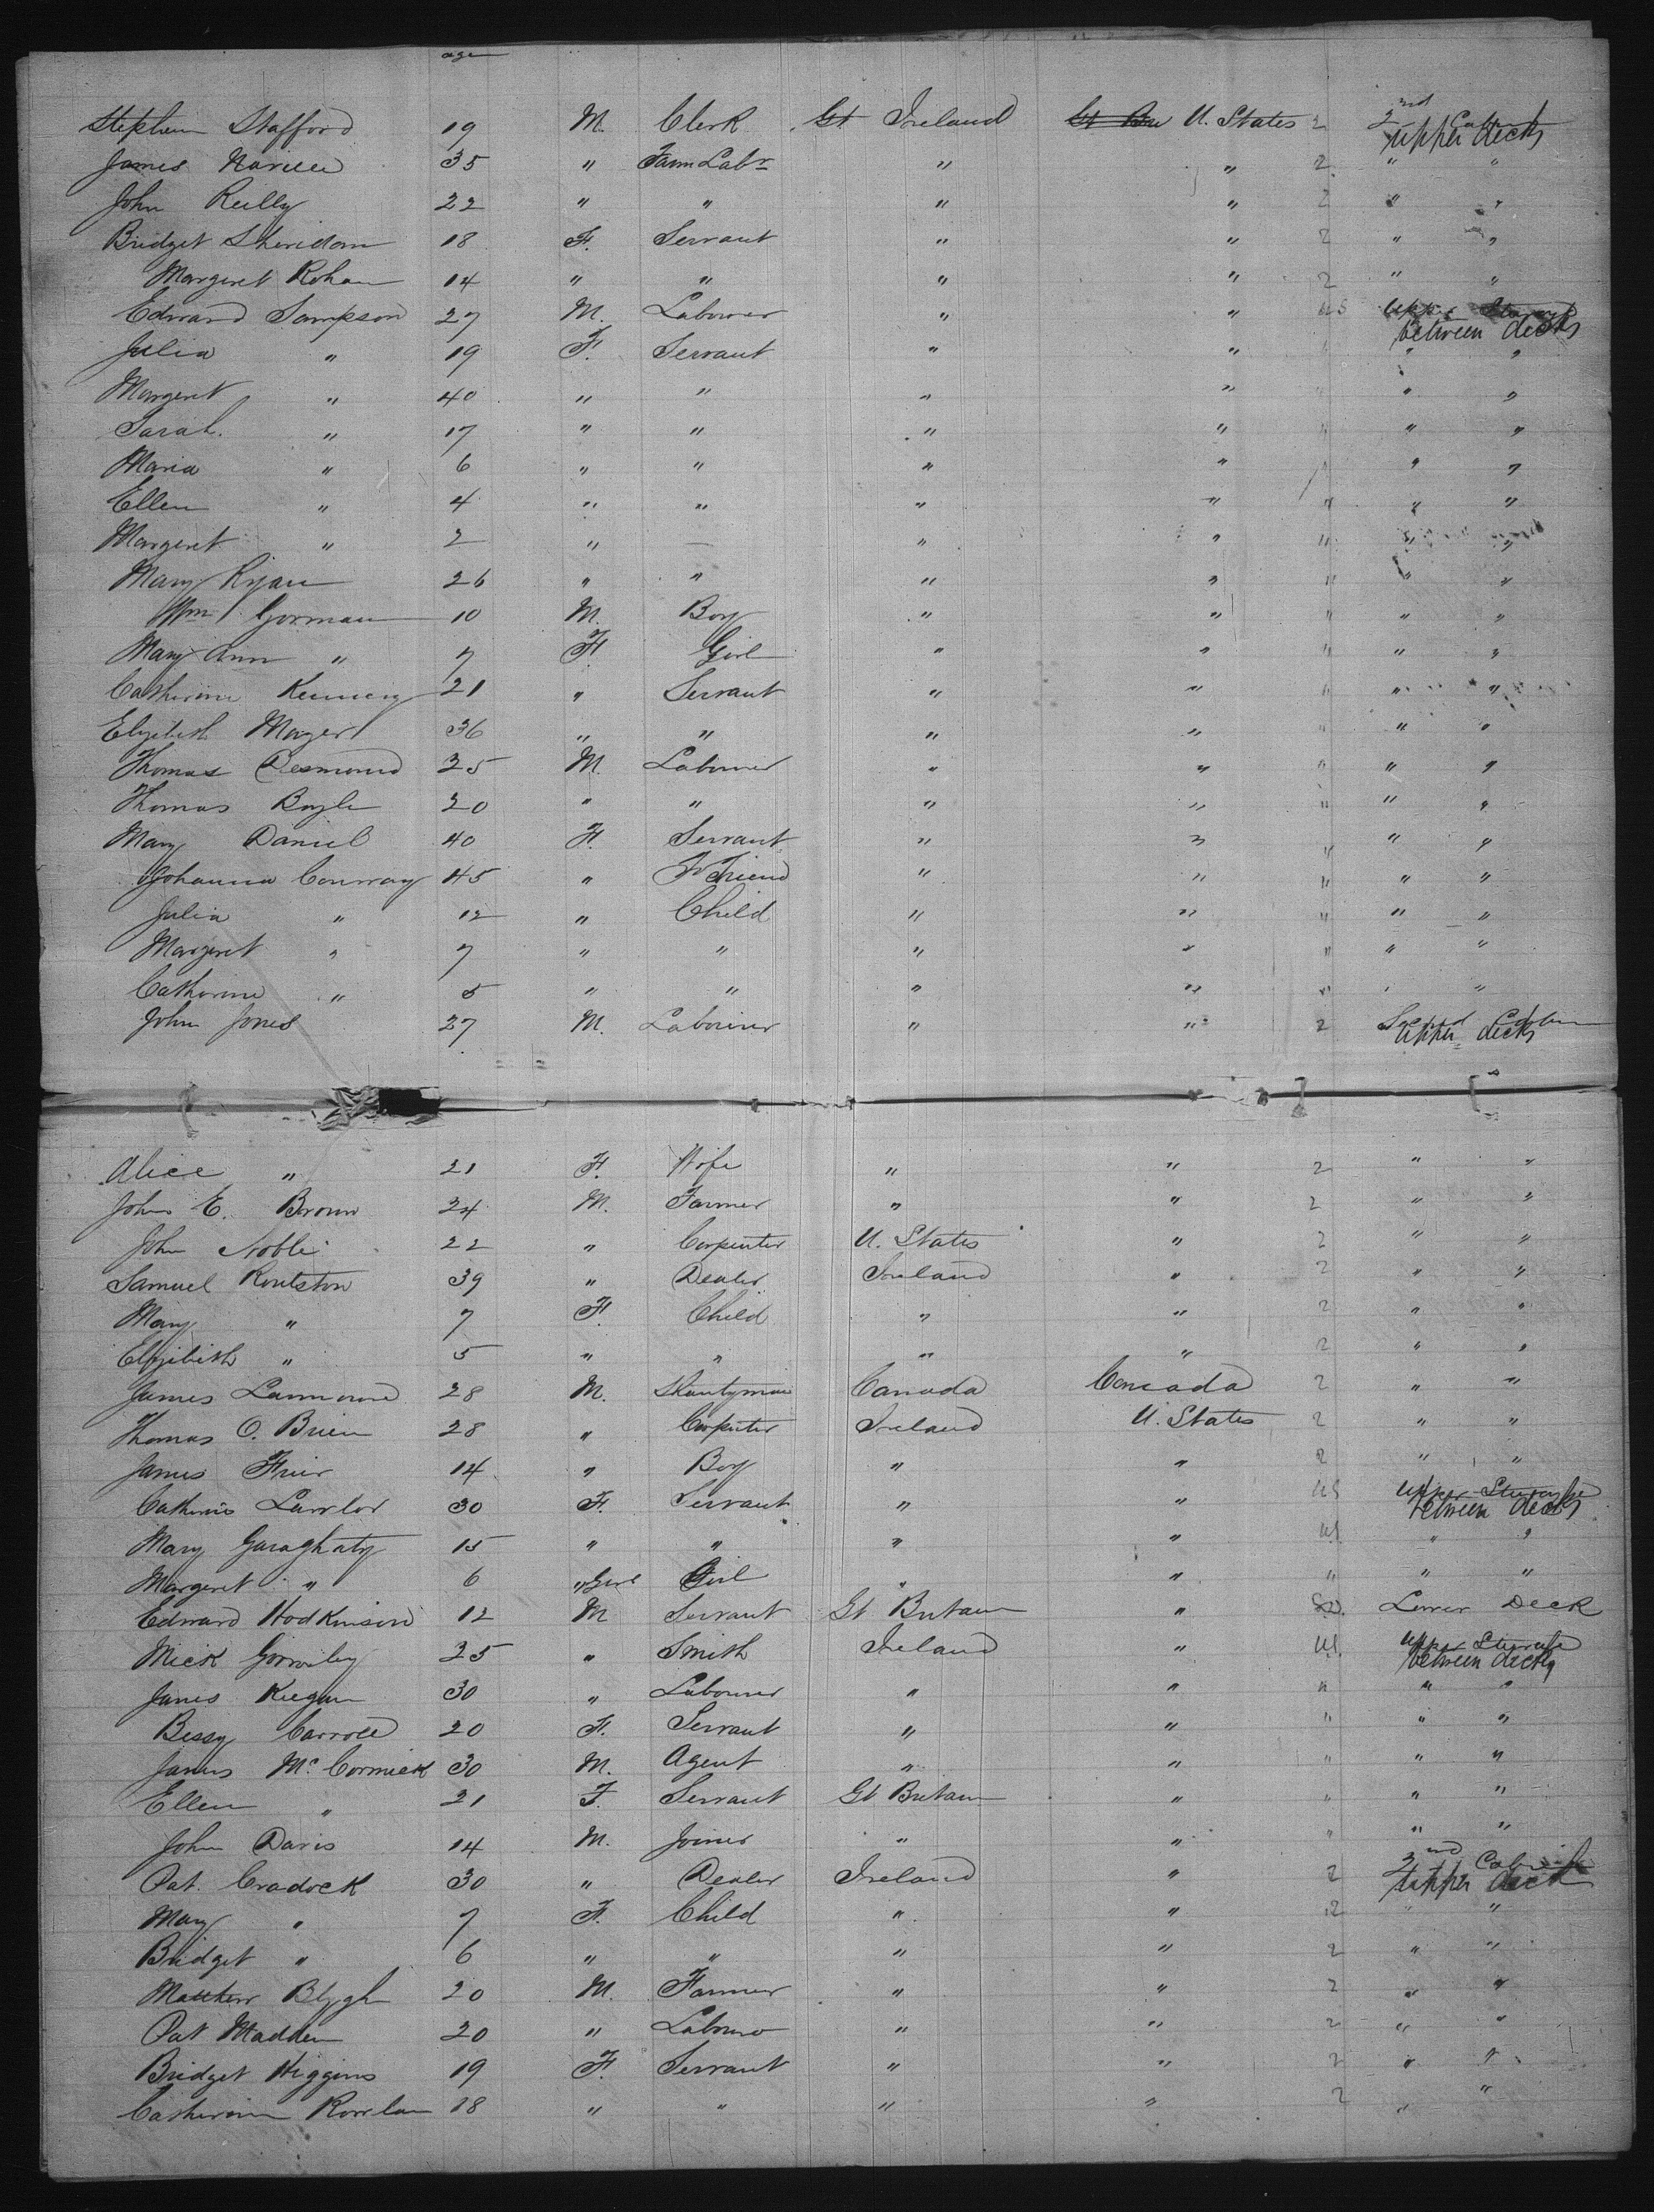 age
Stephen Stafford 19 M. Clerk Gt Ireland U. States 2 2nd Cabin Upper decks
James 35 " Farm Labr " " 2 " "
John Reilly 22 " " " " 2 " "
Bridget Sheridan 18 F. Servant " " 2 " "
Margeret Rohan 14 " " " " 2 " "
Edward Sampson 27 M. Labourer " " US Upper Steerage between decks
Julia " 19 F. Servant " " " " "
Margeret " 40 " " " " " " "
Sarah " 17 " " " " " " "
Maria " 6 " " " " " " "
Ellen " 4 " " " " " " "
Margeret " 2 " — " " " " "
Mary Ryan 26 " " " " " " "
Wm Gorman 10 M. Boy " " " " "
Mary Ann " 7 F Girl " " " " "
Catherine Kenney 21 " Servant " " " " "
Elizibeth Mayer 36 " " " " " " "
Thomas Desmond 25 M. Labourer " " " " "
Thomas Boyle 20 " " " " " " "
Mary Daniel 40 F. Servant " " " " "
Johanna Conway 45 " Friend " " " " "
Julia " 12 " Child " " " " "
Margeret " 7 " " " " " " "
Catherine " 5 " " " " " " "
John Jones 27 M. Labourer " " 2 Second Cabin Upper decks
Alice " 21 F. Wife " " 2 " "
John E. Brown 24 M. Farmer " " 2 " "
John Noble 22 " Carpenter U. States " 2 " "
Samuel Roulston 39 " Dealer Ireland " 2 " "
Mary " 7 F. Child " " 2 " "
Elizibeth " 5 " " " " 2 " "
James 28 M. Shantyman Canada Canada 2 " "
Thomas O. Brien 28 " Carpenter Ireland U. States 2 " "
James 14 " Boy " " 2 " "
Catherine Lawlor 30 F. Servant " " US Upper Steerage between decks
Mary Garaghaty 15 " " " " US " "
Margeret " 6 " Girl Girl " " " " "
Edward Hodkinson 12 M Servant Gt Britain " Lower Deck
Mick 25 " Smith Ireland " US Upper Steerage between decks
James Keegan 30 " Labourer " " " " "
Bessy Carroll 20 F. Servant " " " " "
James Mc Cormick 30 M. Agent " " " " "
Ellen " 21 F. Servant Gt Britain " " " "
John Davis 14 M. Joiner " " " " "
Pat. Cradock 30 " Dealer Ireland " 2 2nd Cabin Upper deck
Mary " 7 F. Child " " 2 " "
Bridget " 6 " " " " 2 " "
Matthew Blygh 20 M. Farmer " " 2 " "
Pat Madden 20 " Labourer " " 2 " "
Bridget Higgins 19 F. Servant " " 2 " "
Catherine 18 " " " " 2 " "